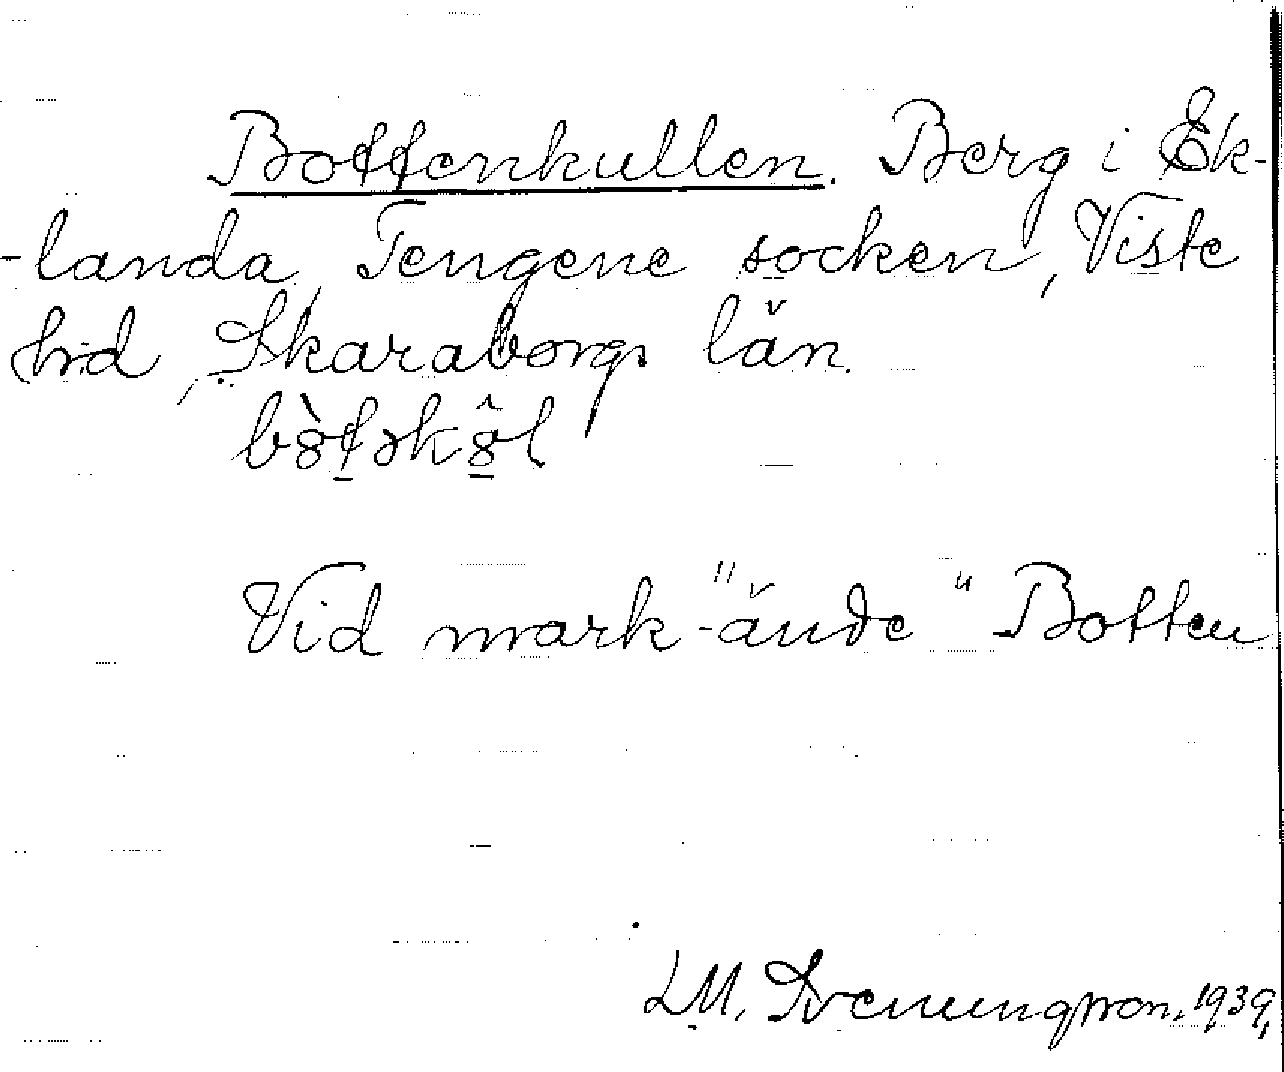 Bottenkullen. Berg i Ek-
-landa, Tengene socken, Viste
hrd, Skaraborgs län.
Vid mark-"ände" Botten
L.M. Svenungsson. 1939.